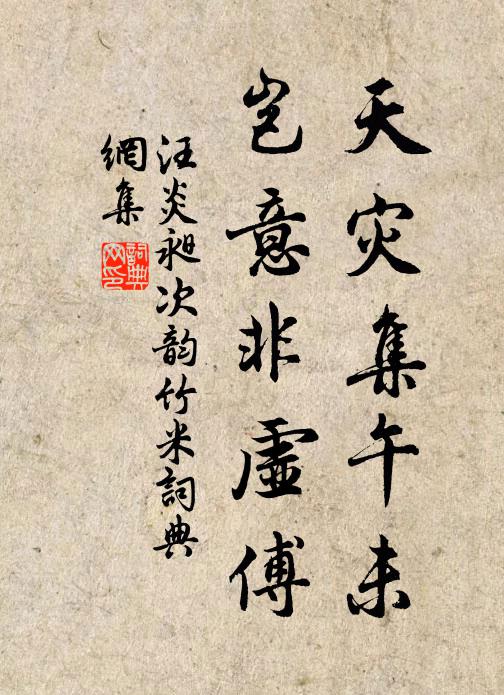 天灾集午未
岂意非虛傅
汪炎昶次韵竹米詞典
網集
詞典
网印